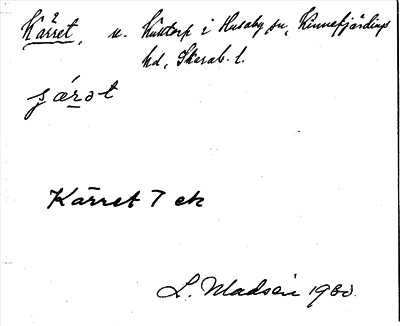 Kärret, u. Huttorp i Husaby sn, Kinnefjärdings
hd, Skarab. l.
Kärret 7 ek
L. Madsén 1930